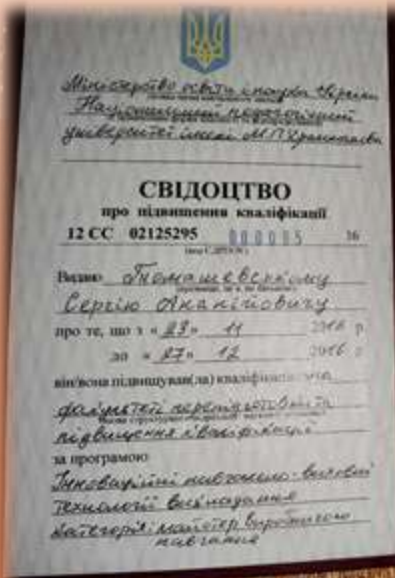 Міністерство освіти і науки України
Національний педагогічний
університет імені М.П. Драгоманова
СВІДОЦТВО
про підвищення кваліфікації
12 СС 02125295 16
Видано
Сергію Ананійовичу
про те, що з « 23 » 11 2016 р.
до « 27 » 12 2016 р
він/вона підвищував(ла) кваліфікацію на
факультеті перепідготовки та
підвищення кваліфікації
за програмою
Інноваційні навчально-виховні
технології викладання
Категорія: майстер виробничого
навчання